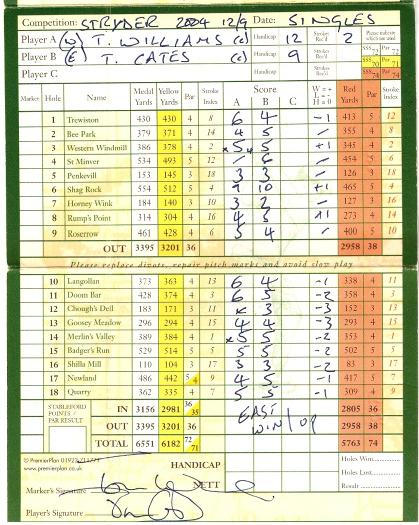 Competition: STRYDER 2004 12/9 Date: SINGLES
Player A (W) T. WILLIAMS (c) Handicap 12 Strokes Rec'd 2 Please indicate which tee used
Player B (E) T. CATES (c) Handicap 9 Strokes Rec'd SSS 72 Par 72 SSS 70 Par 71
Player C Handicap Strokes Rec'd SSS 74 Par 74
Marker Hole Name Medal Yards Yellow Yards Par Stroke Index Score A B C W = + L = - H = 0 Red Yards Par Stroke Index
1 Trewiston 430 430 4 8 6 4 -1 413 5 12
2 Bee Park 379 371 4 14 4 5 371 4 8
3 Western Windmill 386 378 4 2 x5 x5 +1 345 4 2
4 St Minver 534 493 5 12 6 454 5 6
5 Penkevill 153 145 3 18 3 3 126 3 18
6 Shag Rock 554 512 5 4 9 10 +1 465 5 4
7 Horney Wink 184 140 3 10 3 2 127 3 16
8 Rump's Point 314 304 4 16 4 5 +1 273 4 14
9 Roserrow 461 428 4 6 5 4 400 5 10
OUT 3395 3201 36 2958 38
Please replace divots, repair pitch marks and avoid slow play
10 Langollan 373 363 4 13 6 4 -1 338 4 11
11 Doom Bar 428 374 4 3 6 5 -2 358 4 3
12 Chough's Dell 183 171 3 11 x 3 -3 152 3 13
13 Goosey Meadow 296 294 4 15 4 4 -3 293 4 15
14 Merlin's Valley 389 384 4 1 x5 5 -2 353 4 1
15 Badger's Run 529 514 5 5 5 5 -2 502 5 5
16 Shilla Mill 110 104 3 17 3 3 -2 83 3 17
17 Newland 486 442 5 4 9 4 5 -1 417 5 7
18 Quarry 362 335 4 7 5 5 -1 309 4 9
STABLEFORD POINTS / PAR RESULT IN 3156 2981 36 35 EAST 2805 36
OUT 3395 3201 36 WIN 1 UP 2958 38
TOTAL 6551 6182 72 71 5763 74
© PremierPlan
www.premierplan.co.uk HANDICAP Holes Won
Marker's Signature NETT Holes Lost
Player's Signature Result